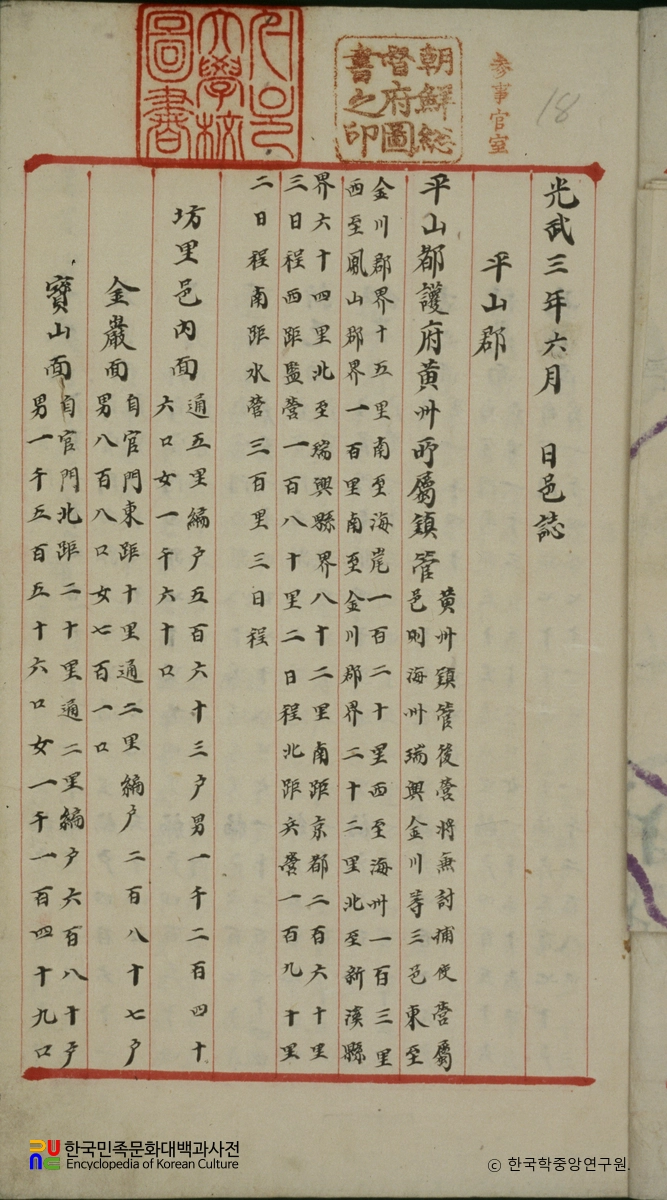 光武三年六月 日邑誌
平山郡
平山都護府黃州所屬鎮管
黃州鎮管後營將兼討捕使營屬
邑則海州瑞興金川等三邑東至
金川郡界十五里南至海岸一百二十里西至海州一百三里
西至鳳山郡界一百里南至金川郡界二十二里北至新溪縣
界六十四里北至瑞興縣界八十二里南距京都二百六十里
三日程西距監營一百八十里二日程北距兵營一百九十里
二日程南距水營三百里三日程
坊里邑內面
通五里編戶五百六十三戶男一千二百四十
六口女一千六十口
金巖面
自官門東距十里通二里編戶二百八十七戶
男八百八口女七百一口
寶山面
自官門北距二十里通二里編戶六百八十戶
男一千五百五十六口女一千一百四十九口
朝鮮総
督府圖
書之印
大學校
圖書
参事官室
18
한국민족문화대백과사전
Encyclopedia of Korean Culture
© 한국학중앙연구원